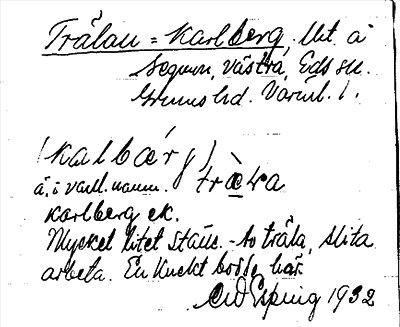 Trålau = Karlberg, Ut. å
Segmon, Västra, Eds sn.
Grums hd. Värml. l.
(kalbærj) trǻla
å. i vanl. namn.
Karlberg ek.
Mycket litet ställe. - Av tråla, slita
arbeta. En knekt bodde här.
CW Esping 1932